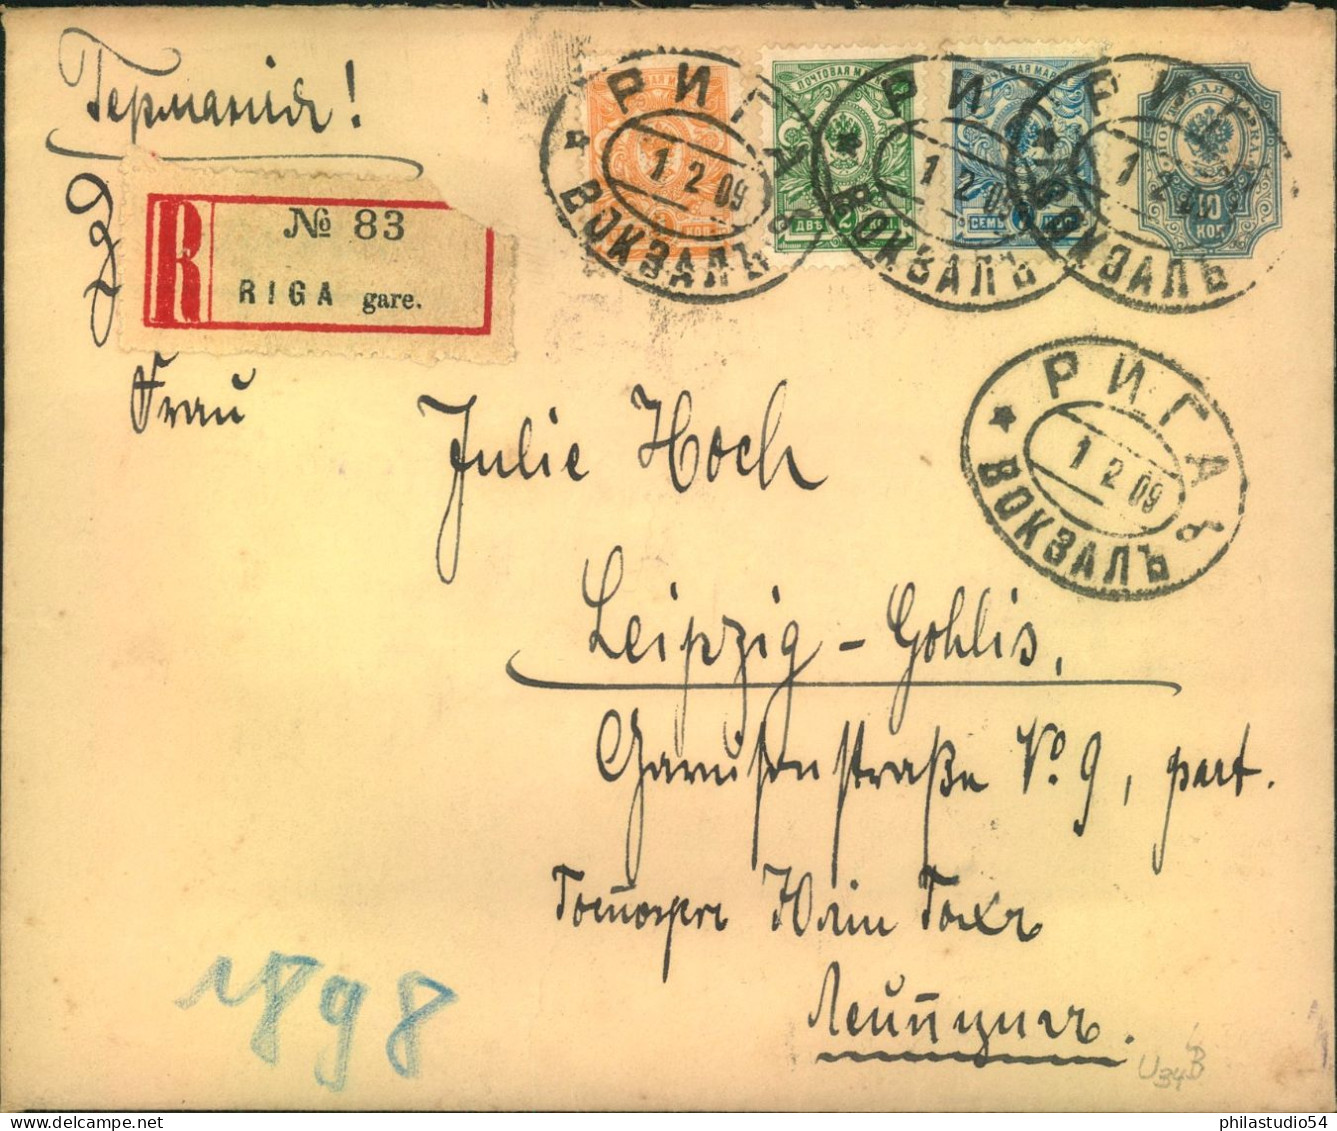 Германія!
ПОЧТОВАЯ МАРКА
ДВѢ 2
СЕМЬ
10
КОП
РИГА
1 2 09
ВОКЗАЛЪ б
РИГА
1 2 09
ВОКЗАЛЪ
РИГА
1 2 09
ВОКЗАЛЪ
R № 83
RIGA gare.
РИГА
1 2 09
ВОКЗАЛЪ б
Frau
Julie Hoch
Leipzig - Gohlis,
Garnisonstraße No. 9, part.
Юліи Гохъ
Лейпцигъ.
1898
U34B
philastudio54